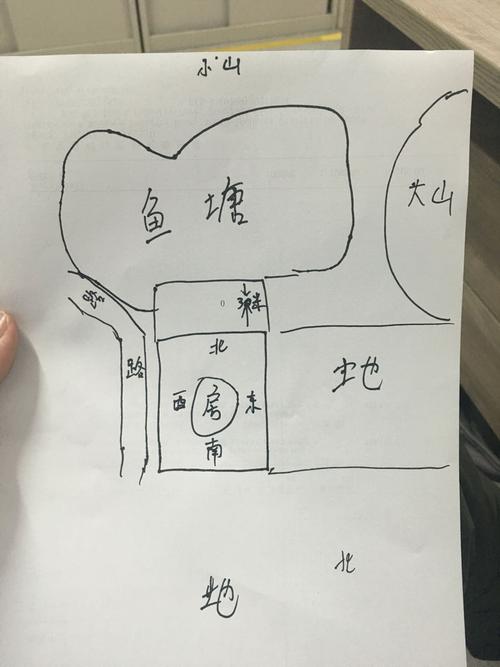 小山
鱼塘
大山
路
3米
北
路
西
房
东
地
南
北
地